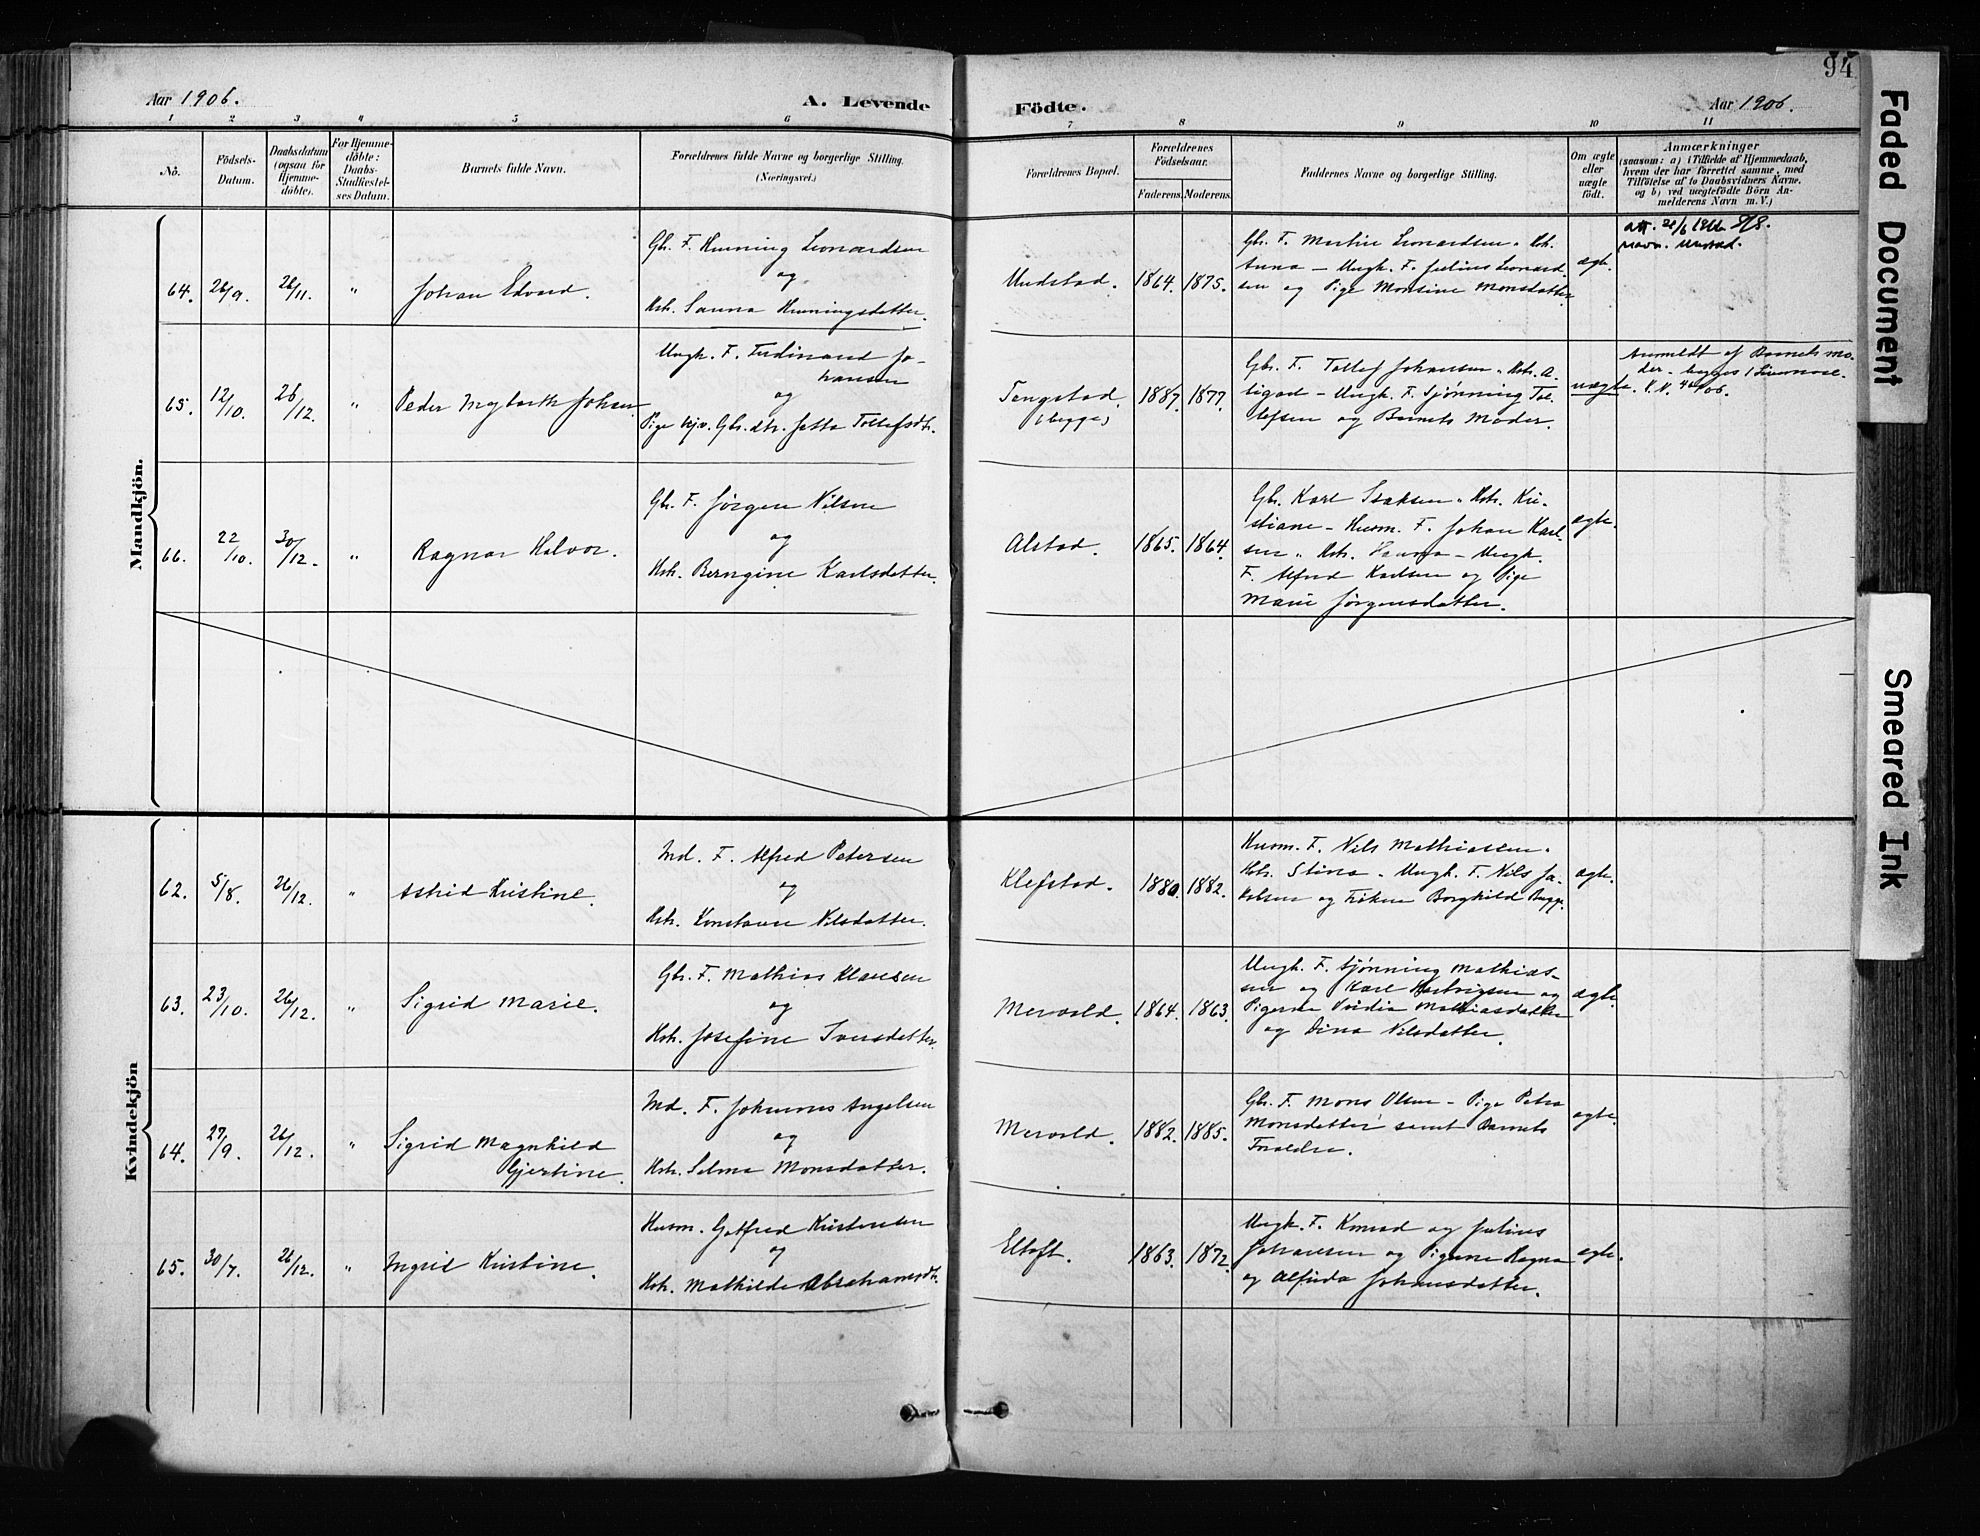 94
Aar 1906.
A. Levende
Födte.
Aar 1906.
1 2 3 4 5 6 7 8 9 10 11
No.
Födsels-Datum.
Daabsdatum (ogsaa for Hjemme-döbte).
For Hjemme-döbte: Daabs-Stadfæstel-ses Datum.
Barnets fulde Navn.
Forældrenes fulde Navne og borgerlige Stilling. (Næringsvei.)
Forældrenes Bopæl.
Forældrenes Födselsaar.
Faderens. Moderens.
Faddernes Navne og borgerlige Stilling.
Om ægte eller uægte födt.
Anmærkninger
(saasom: a) i Tilfælde af Hjemmedaab, hvem der har forrettet samme, med Tilföielse af to Daabsvidners Navne, og b) ved uægtefödte Börn An-melderens Navn m. V.)
Mandkjön.
64. 26/9. 26/11. " Johan Edvard.
Gbr. F. Henning Leonardsen
og
Hst. Sanna Henningsdatter.
Undstad. 1864. 1875.
Gbr. F. Martin Leonardsen. Hst.
Anna — Ungk. F. Julius Leonard-
sen og Pige Monsine Monsdatter
ægte.
att. 21/6 1966
navn. Unstad.
65. 12/10. 26/12. " Peder Ingbarth Johan
Ungk. F. Ferdinand Jo-
hansen
og
Pige Gbr. dtr. Jetta Tollefsdtr.
Tangstad.
(begge)
1887. 1877.
Gbr. F. Tollef Johansen. Hst. A-
ligad — Ungk. F. Tjønning Tol-
lefsen og Barnets Moder.
uægte.
Anmeldt af Barnets mo-
der - begges 1
66. 22/10. 30/12. " Ragnar Halvor.
Gbr. F. Jørgen Nilsen
og
Hst. Berngine Karlsdatter.
Alstad. 1865. 1864.
Gbr. Karl Isaksen. Hst. Kri-
stiane — Husm. F. Johan Karl-
sen. Hst. Hanna — Ungk.
F. Alfred Karlsen og Pige
Marie Jørgensdatter.
ægte.
Kvindekjön
62. 5/8. 26/12. " Astrid Kristine.
Md. F. Alfred Petersen
og
Hst. Konstanse Nilsdatter.
Klefstad. 1880. 1882.
Husm. F. Nils Mathiassen.
Hst. Stina. Ungk. F. Nils Ja-
kobsen og Frøken Borghild Bugge.
ægte.
63. 23/10. 26/12. " Sigrid Marie.
Gbr. F. Mathias Klausen
og
Hst. Josefine Iversdatter.
Mervold. 1864. 1863.
Ungk. F. Tjønning Mathias-
sen og Karl Hartvigsen og
Pigerne Mathiasdatter
og Dina Nilsdatter.
ægte.
64. 27/9. 26/12. " Sigrid Magnhild
Gjertine.
Md. F. Johannes Angelsen
og
Hst. Selma Monsdatter.
Mervold. 1882. 1885.
Gbr. F. Mons Olsen — Pige Petra
Monsdatter samt Barnets
Forældre.
ægte.
65. 30/7. 26/12. " Ingrid Kristine.
Husm. Gotfred Kristensen
og
Hst. Mathilde Abrahamsdtr.
Eltoft. 1863. 1872.
Ungk. F. Konrad og Julius
Johansen og Pigerne Ragna
og Alfrida Johansdatter.
ægte.
Faded Document
Smeared Ink